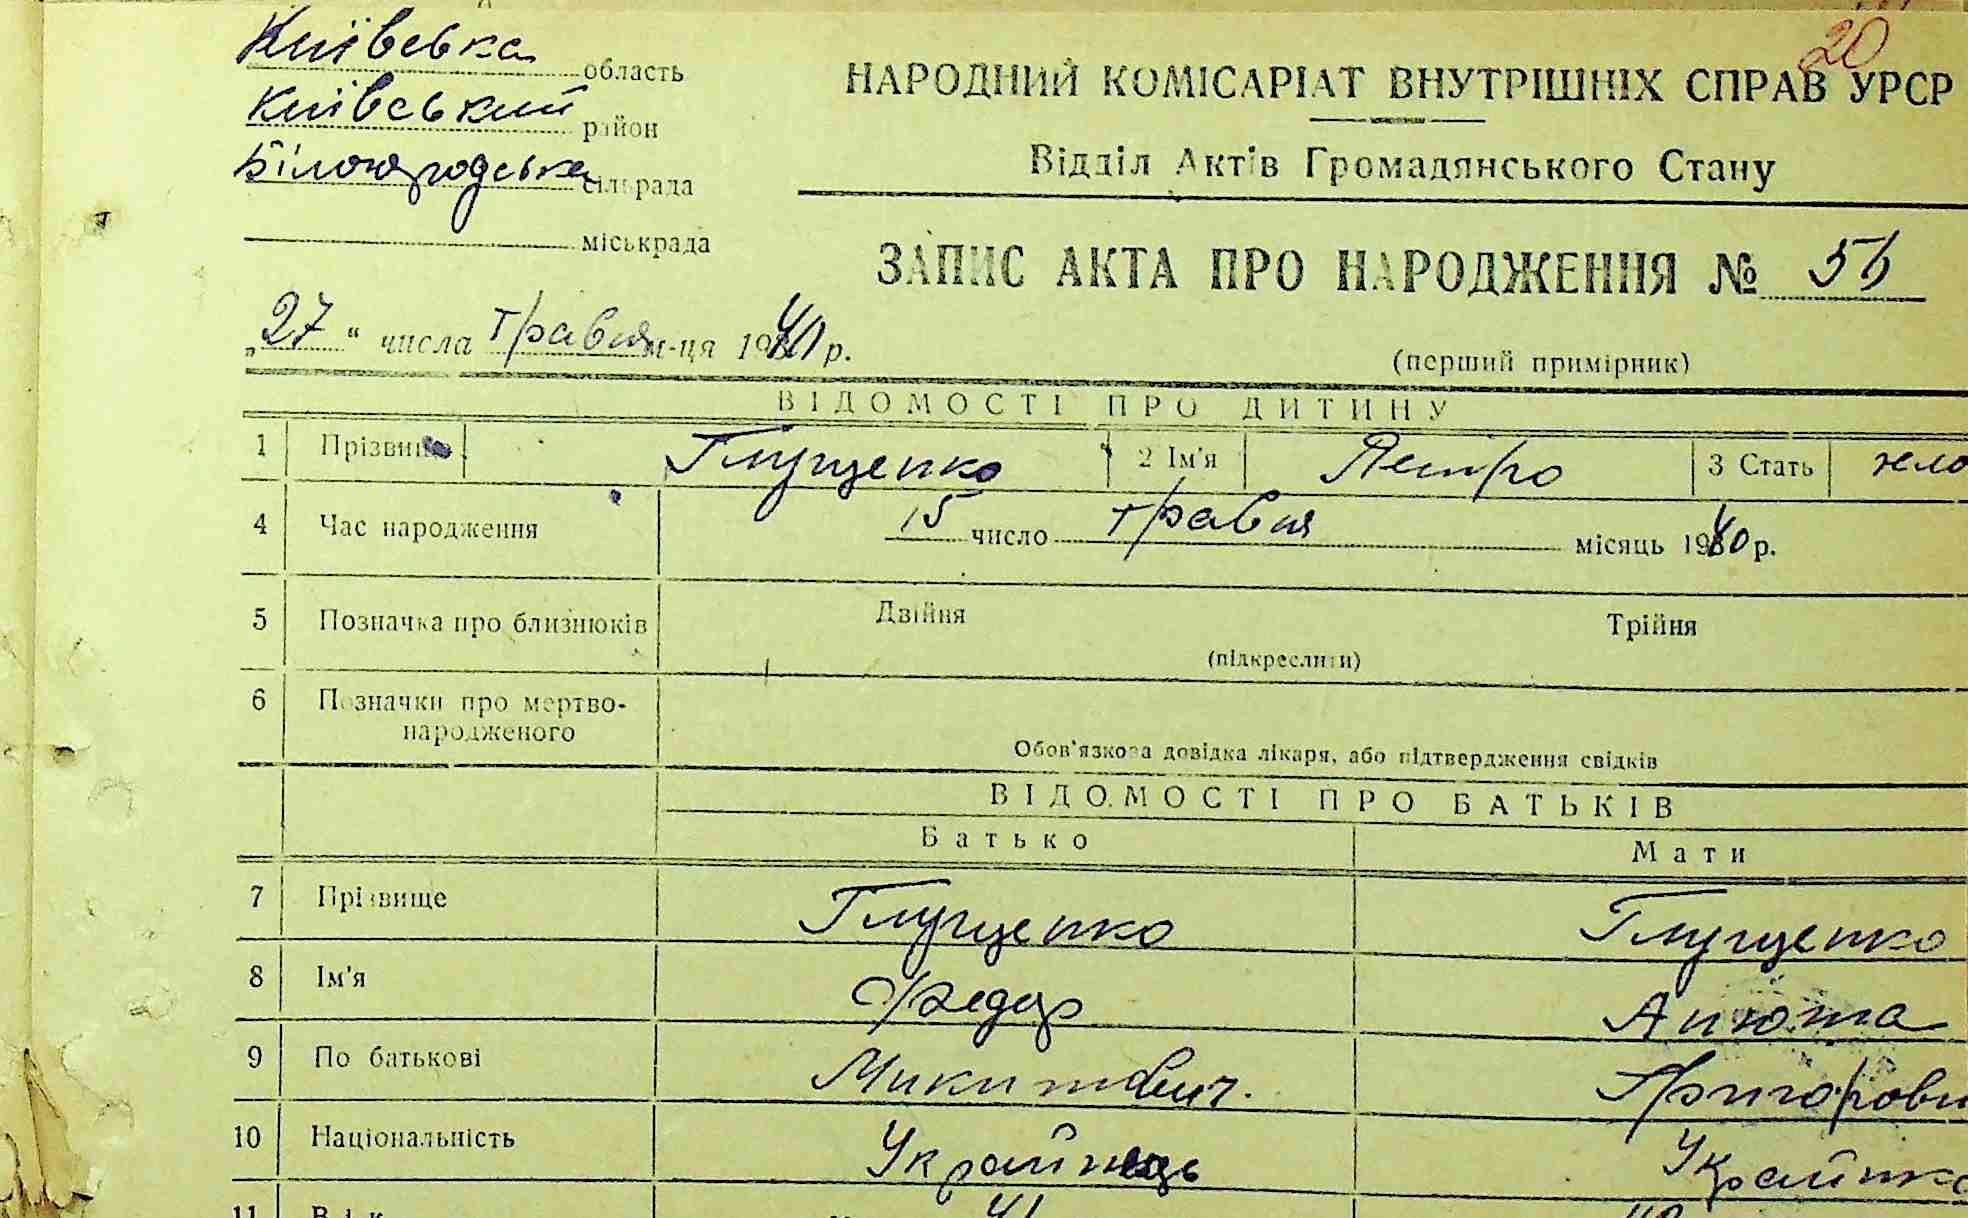 20
Київська область
НАРОДНИЙ КОМІСАРІАТ ВНУТРІШНІХ СПРАВ УРСР
Київський район
Відділ Актів Громадянського Стану
Білогородська сільрада
міськрада
ЗАПИС АКТА ПРО НАРОДЖЕННЯ №
„27“ числа травня м-ця 1940 р.
(перший примірник)
ВІДОМОСТІ ПРО ДИТИНУ
1 Прізвище Глущенко 2 Ім'я Петро 3 Стать чоло
4 Час народження 15 число травня місяць 1940 р.
5 Позначка про близнюків Двійня Трійня
(підкреслити)
6 Позначки про мертво-
народженого
Обов'язкова довідка лікаря, або підтвердження свідків
ВІДОМОСТІ ПРО БАТЬКІВ
Батько Мати
7 Прізвище Глущенко Глущенко
8 Ім'я Федор Анюта
9 По батькові Микитович. Григоровн
10 Національність Українець Українка
11 Вік 41